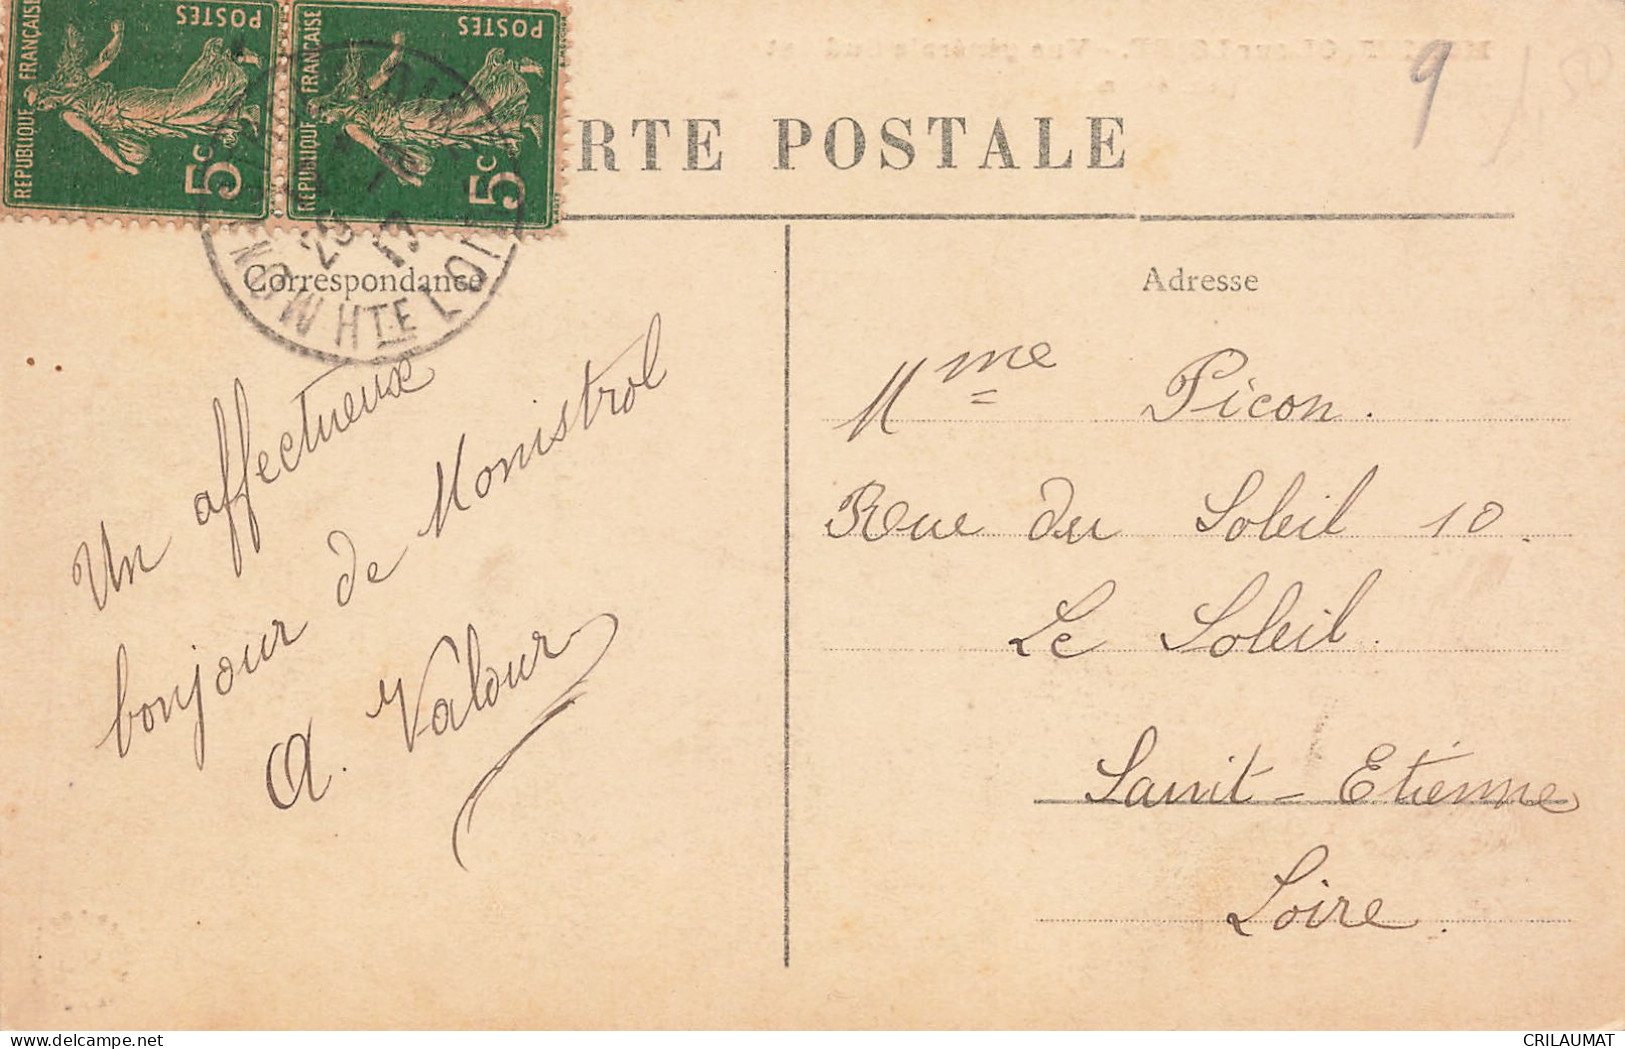 REPUBLIQUE FRANÇAISE
POSTES
5c
REPUBLIQUE FRANÇAISE
POSTES
5c
RTE POSTALE
9
HTE LOIRE
Correspondance
Adresse
Un affectueux
bonjour de Monistrol
A. Valour
Mme Picon.
Rue du Soleil 10.
Le Soleil.
Saint-Etienne
Loire.
CRILAUMAT